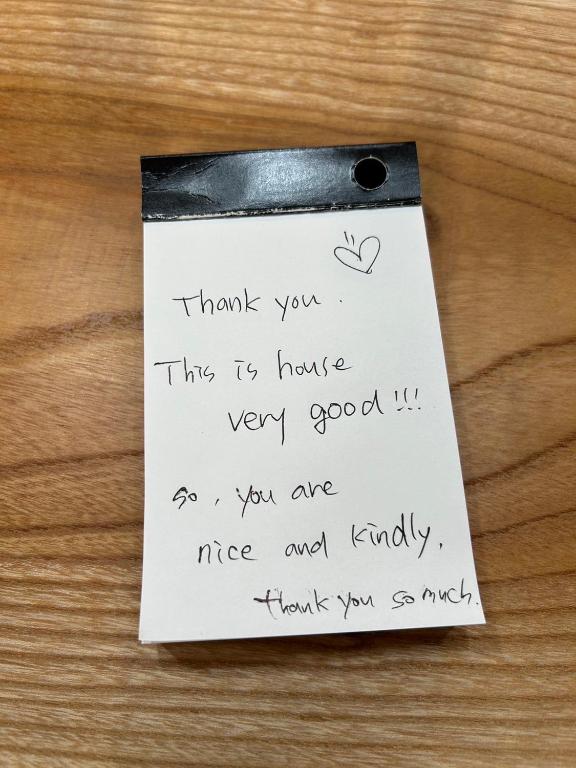 Thank you.
This is house
very good!!!
so, you are
nice and kindly.
thank you so much.